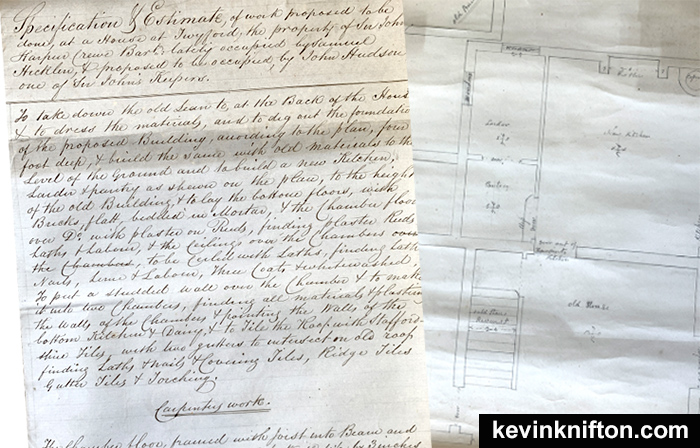 Specification & Estimate, of work proposed to be
done, at a House at Twyford, the property of Sir John
Harpur Crewe Bart. lately occupied by Samuel
Hicklin, & proposed to be occupied, by John Hudson
one of Sir John's Keepers.
To take down the old Lean to, at the Back of the House
& to dress the materials, and to dig out the foundation
of the proposed Building, according to the plan, four
foot deep, & build the same with old materials to the
Level of the Ground and to build a new Kitchen,
Larder & pantry as shewn on the plan, to the height
of the old Building, & to lay the bottom floors, with
Bricks, flatt, bedded in Mortar, & the Chamber floor
over Do. with plaster on Reeds, finding plaster Reeds
Laths & Labour, & the Ceilings over the Chambers over
the Chambers, to be Ceiled with Laths, finding Laths
Nails, Lime & Labour, three Coats & whitewashed,
To put a studded wall over the Chamber & to make
it into two Chambers, finding all materials & plaster
the Walls of the Chambers & pointing the Walls of the
bottom Kitchen & Dairy, & to Tile the Roof with Stafford-
shire Tiles, with two gutters to intersect on old roof
finding Laths & Nails & Covering Tiles, Ridge Tiles
Gutter Tiles & Torching.
Carpenters work.
The Chamber floor, framed with joist into Beam and
by 3 inches
Larder
Pantry
New Kitchen
Old House
kevinknifton.com